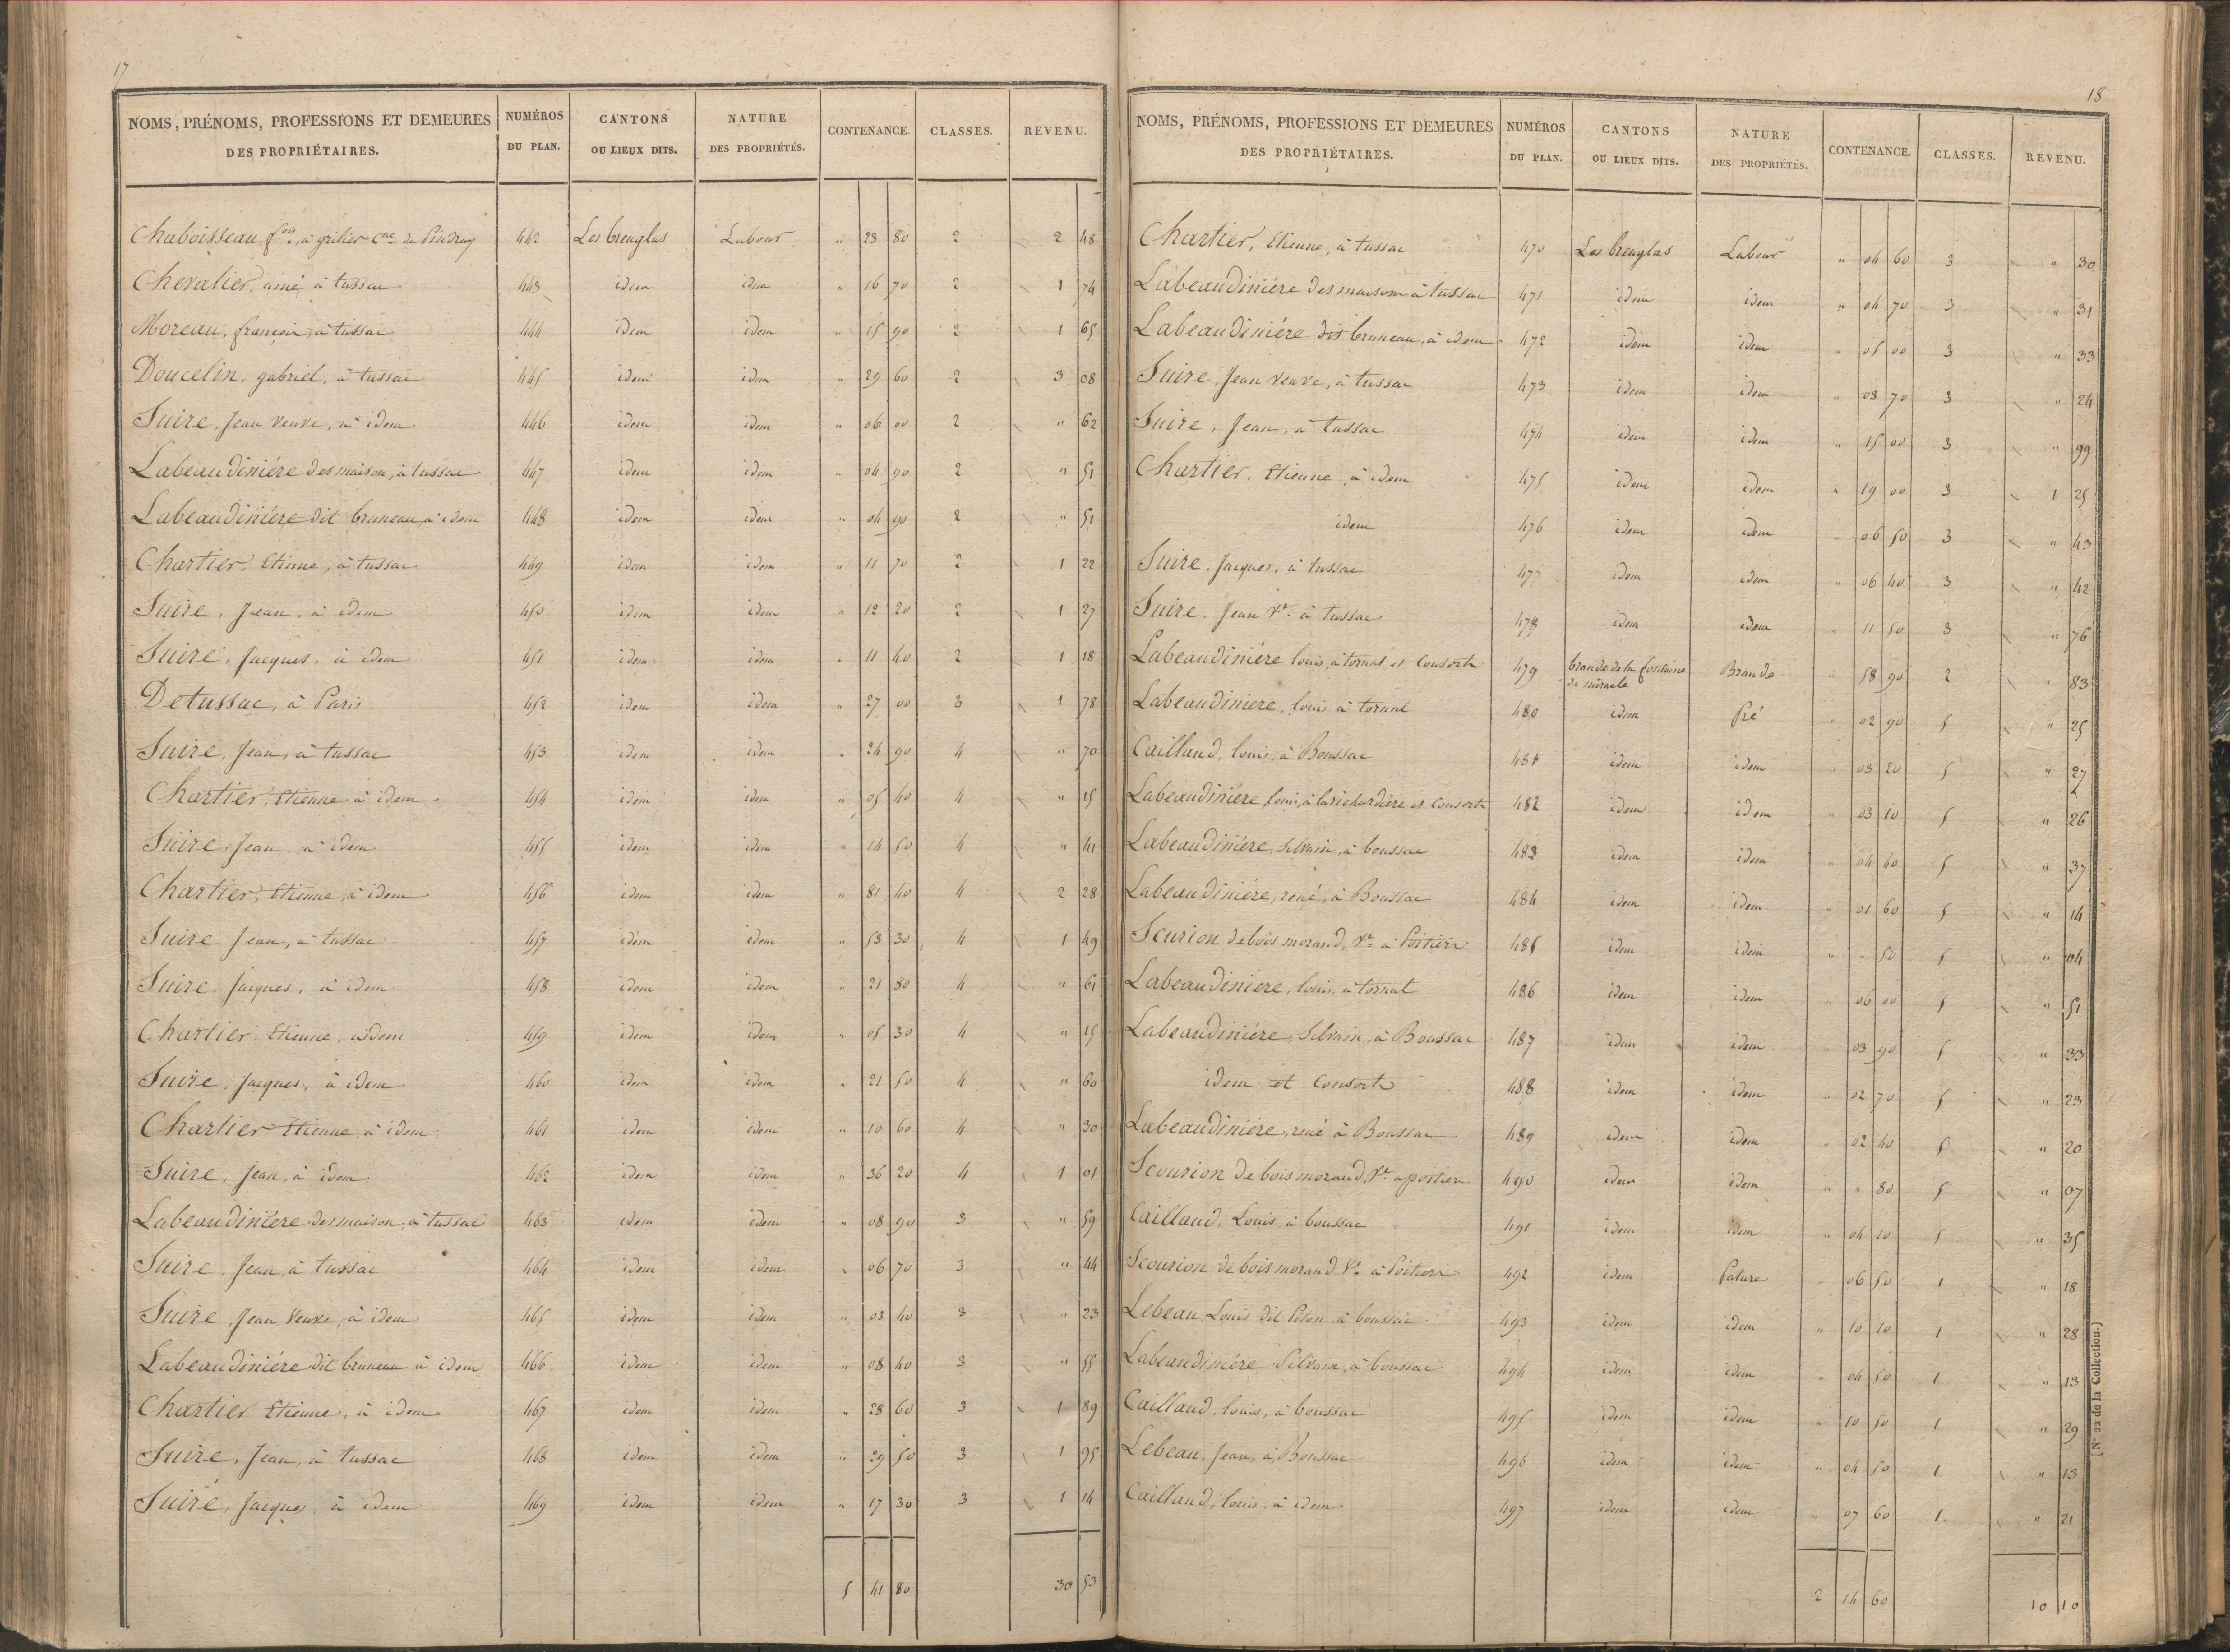 17
NOMS, PRÉNOMS, PROFESSIONS ET DEMEURES DES PROPRIÉTAIRES. NUMÉROS DU PLAN. CANTONS OU LIEUX DITS. NATURE DES PROPRIÉTÉS. CONTENANCE. CLASSES. REVENU.
Chaboisseau, fois, à grilier Cne de Pindray 442 Les breuglas Labour " 23 80 2 2 48
Chevalier, ainé, à tussac 443 idem idem " 16 70 2 1 74
Moreau, françois, à tussac 444 idem idem " 15 90 2 1 65
Doucelin, gabriel, à tussac 445 idem idem " 29 60 2 3 08
Suire, Jean veuve, à idem 446 idem idem " 06 00 2 " 62
Labeaudiniére desmaison, à tussac 447 idem idem " 04 90 2 " 51
Labeaudiniere dit bruneau, à idem 448 idem idem " 04 90 2 " 51
Chartier, Etienne, à tussac 449 idem idem " 11 70 2 1 22
Suire, Jean, à idem 450 idem idem " 12 20 2 1 27
Suire, Jacques, à idem 451 idem idem " 11 40 2 1 18
Detussac, à Paris 452 idem idem " 27 00 3 1 78
Suire, Jean, à tussac 453 idem idem " 24 90 4 " 70
Chartier, Etienne à idem 454 idem idem " 05 40 4 " 15
Suire, Jean, à idem 455 idem idem " 14 50 4 " 41
Chartier, Etienne, à idem 456 idem idem " 81 40 4 2 28
Suire Jean, à tussac 457 idem idem " 53 30 4 1 49
Suire, Jacques, à idem 458 idem idem " 21 80 4 " 61
Chartier, Etienne, à idem 459 idem idem " 05 30 4 " 15
Suire, Jacques, à idem 460 idem idem " 21 50 4 " 60
Chartier Etienne, à idem 461 idem idem " 10 60 4 " 30
Suire, Jean, à idem 462 idem idem " 36 20 4 1 01
Labeaudiniere desmaison, à tussac 463 idem idem " 08 90 3 " 59
Suire, Jean, à tussac 464 idem idem " 06 70 3 " 44
Suire, Jean, Veuve, à idem 465 idem idem " 03 40 3 " 23
Labeaudiniére dit bruneau à idem 466 idem idem " 08 40 3 " 55
Chartier Etienne, à idem 467 idem idem " 28 60 3 1 89
Suire, Jean, à tussac 468 idem idem " 29 50 3 1 95
Suire, Jacques, à idem 469 idem idem " 17 30 3 1 14
5 41 80 30 53
18
NOMS, PRÉNOMS, PROFESSIONS ET DEMEURES DES PROPRIÉTAIRES. NUMÉROS DU PLAN. CANTONS OU LIEUX DITS. NATURE DES PROPRIÉTÉS. CONTENANCE. CLASSES. REVENU.
Chartier, Etienne, à tussac 470 Les breuglas Labour " 04 60 3 " 30
Labeaudiniére desmaison à tussac 471 idem idem " 04 70 3 " 31
Labeaudiniére dit bruneau, à idem 472 idem idem " 05 00 3 " 33
Suire, Jean veuve, à tussac 473 idem idem " 03 70 3 " 24
Suire, Jean, à tussac 474 idem idem " 15 00 3 " 99
Chartier, Etienne, à idem 475 idem idem " 19 00 3 1 25
idem 476 idem idem " 06 50 3 " 43
Suire, Jacques, à tussac 477 idem idem " 06 40 3 " 42
Suire, Jean Ve à tussac 478 idem idem " 11 50 3 " 76
Labeaudiniére louis, à tornat et Consorts 479 brande de la fontaine de miracle Brande " 58 90 2 " 83
Labeaudiniere, louis à tornat 480 idem Pré " 02 90 5 " 25
Cailland, louis, à Boussac 481 idem idem " 03 20 5 " 27
Labeaudiniére, louis, à larichardière et Consorts 482 idem idem " 03 10 5 " 26
Labeaudiniére, Silvain, à boussac 483 idem idem " 04 40 5 " 37
Labeaudiniére, rené, à Boussac 484 idem idem " 01 60 5 " 14
Scurion debois morand, Ve à Poitiers 485 idem idem " " 50 5 " 04
Labeaudiniere, louis, à tornat 486 idem idem " 06 00 5 " 51
Labeaudiniére, Silvain, à Boussac 487 idem idem " 03 90 5 " 33
idem et Consorts 488 idem idem " 02 70 5 " 23
Labeaudiniére, rené à Boussac 489 idem idem " 02 40 5 " 20
Scourion de bois morand, Ve a poitiers 490 idem idem " " 80 5 " 07
Cailland, Louis, à boussac 491 idem idem " 04 10 5 " 35
Scourion de bois morand Ve à Poitiers 492 idem Pature " 06 50 1 " 18
Lebeau, Louis dit Piton à boussac 493 idem idem " 10 10 1 " 28
Labeaudiniére Silvain, à boussac 494 idem idem " 04 50 1 " 13
Cailland, louis, à boussac 495 idem idem " 10 50 1 " 29
Lebeau, Jean, à Boussac 496 idem idem " 04 50 1 " 13
Cailland, louis, à idem 497 idem idem " 07 60 1 " 21
2 14 60 10 10
(N° 22 de la Collection.)